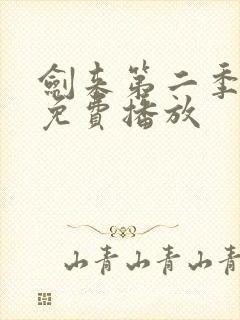 劍来第二季
免費播放
山青山青山青